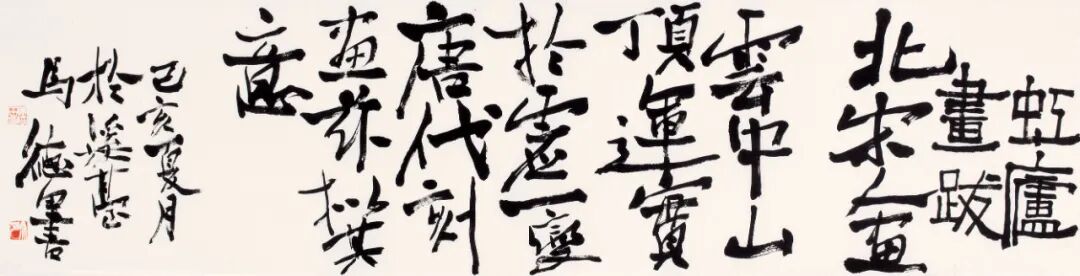 虹廬
畫跋
北宋人畫
雲中山
頂運實
於虛一變
唐代刻
畫茲拟其
意
己亥夏月
於溪
馬德墨書